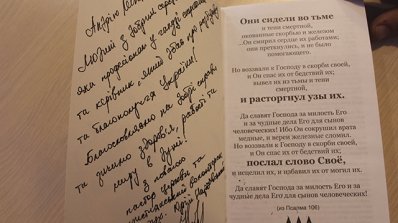 Людині з добрим серцем,
та керівник
та благополуччя України!
Благословляємо на добрі справи
та зичимо здоров'я,
миру в Душі!
З повагою
пастор церкви та
Они сидели во тьме
и тени смертной,
окованные скорбью и железом
...Он смирил сердце их работами;
они преткнулись, и не было
помогающего.
Но воззвали к Господу в скорби своей,
и Он спас их от бедствий их;
вывел их из тьмы и тени
смертной,
и расторгнул узы их.
Да славят Господа за милость Его и
за чудные дела Его для сынов
человеческих! Ибо Он сокрушил врата
медные, и вереи железные сломил.
Но воззвали к Господу в скорби своей,
и Он спас их от бедствий их;
послал слово Своё,
и исцелил их, и избавил их от могил их.
Да славят Господа за милость Его и
за чудные дела Его для сынов
человеческих!
(из Псалма 106)